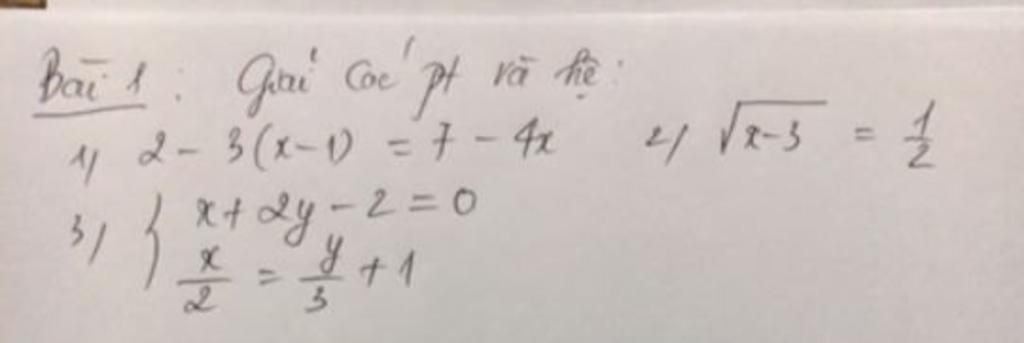 Bài 1 : Giải các pt và hệ :
1) 2 - 3(x-1) = 7 - 4x 2) √x-3 = 1/2
3) { x + 2y - 2 = 0
x/2 = y/3 + 1